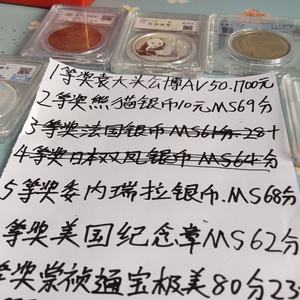 1等奖袁大头公博AV50.1700元
2等奖熊猫银币10元MS69分
3等奖法国银币MS61分28+
4等奖日本双凤银币MS64分
5等奖委内瑞拉银币.MS68分
等奖美国纪念章MS62分
等奖崇祯通宝极美80分23